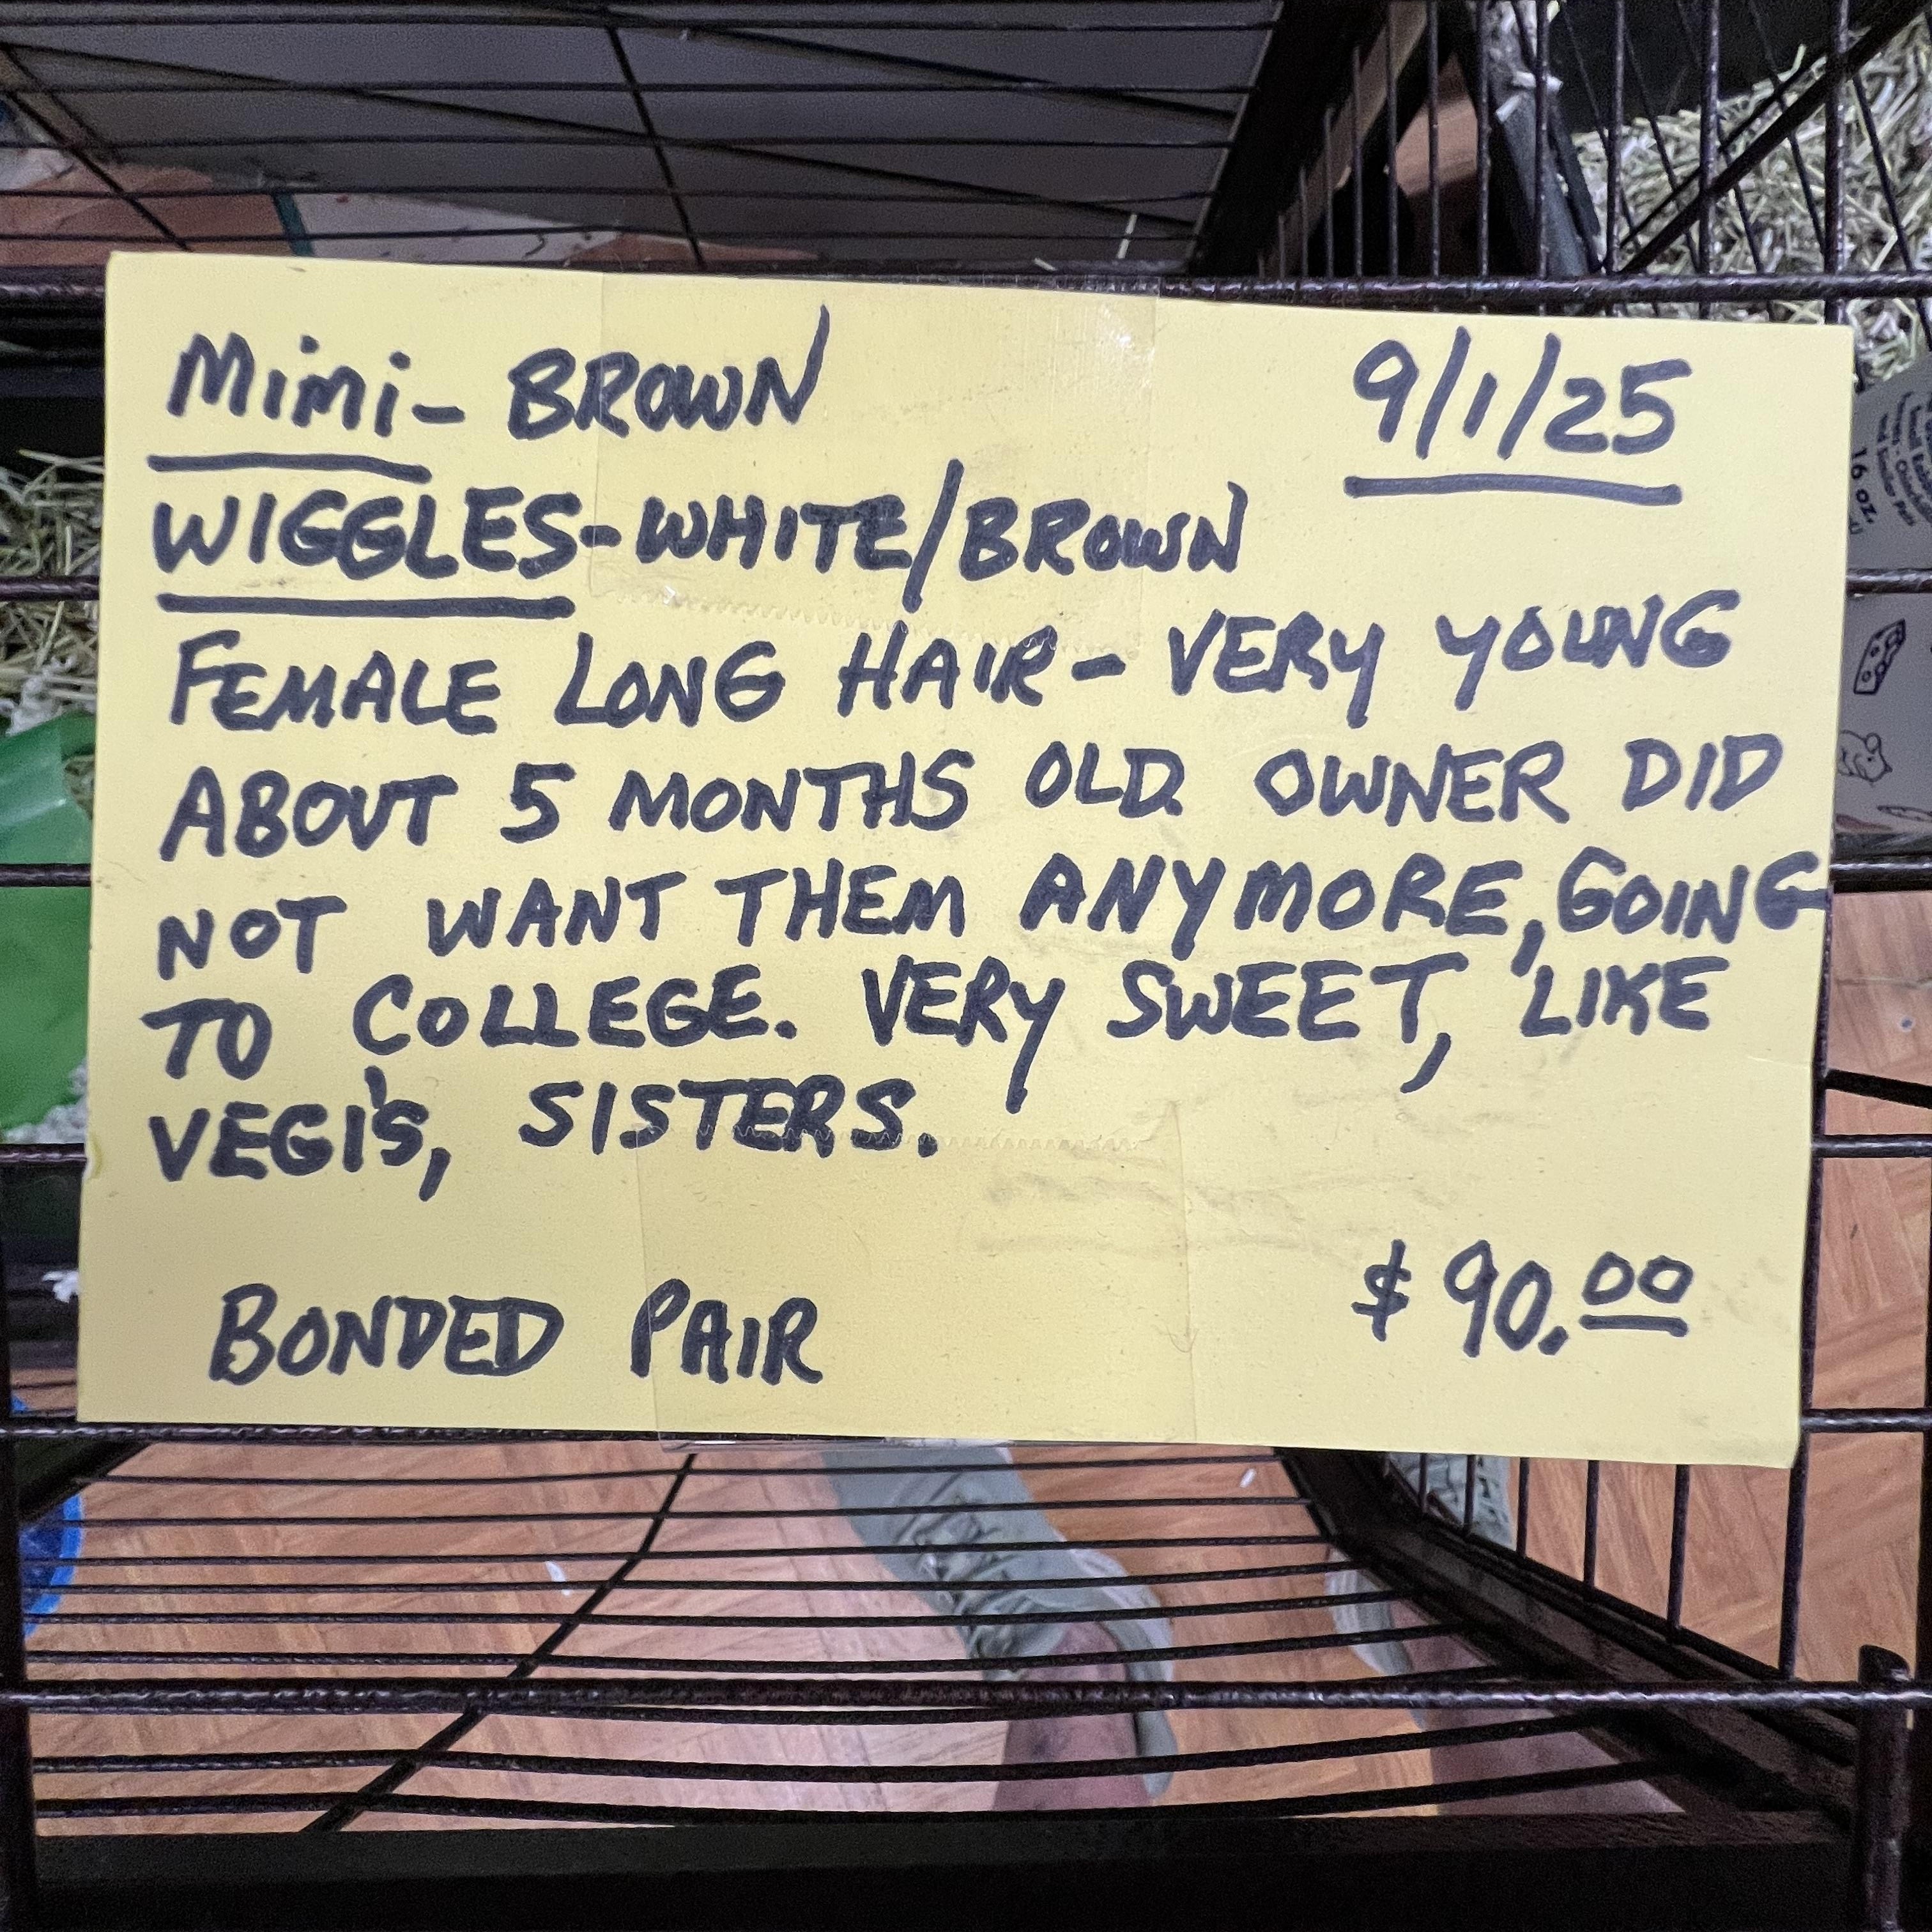 Mimi- BROWN 9/1/25
WIGGLES-WHITE/BROWN
FEMALE LONG HAIR- VERY YOUNG
ABOUT 5 MONTHS OLD. OWNER DID
NOT WANT THEM ANYMORE, GOING
TO COLLEGE. VERY SWEET, LIKE
VEGI'S, SISTERS.
BONDED PAIR $90.00
16 OZ.